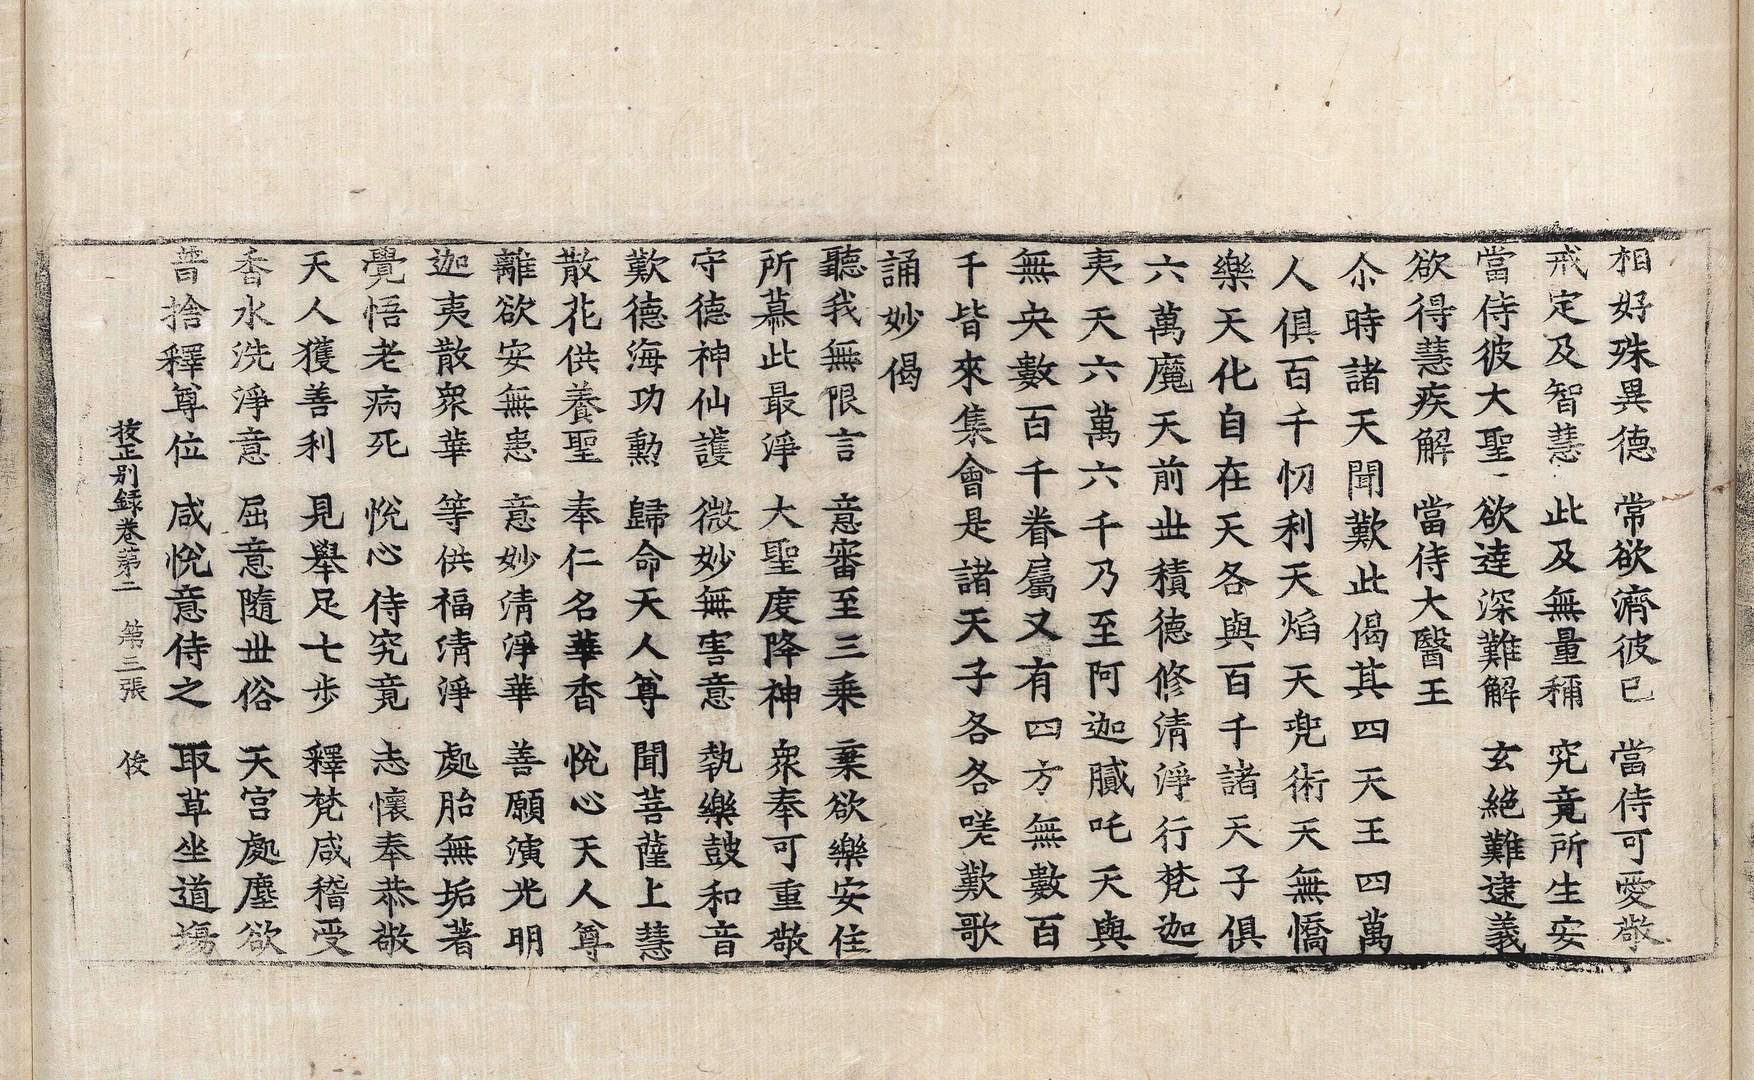 相好殊異德　常欲濟彼已　當侍可愛敬
戒定及智慧　此及無量稱　究竟所生安
當侍彼大聖　欲逹深難解　玄絕難逮義
欲得慧疾解　當侍大醫王
尒時諸天聞歎此偈其四天王四萬
人俱百千忉利天焰天兜術天無憍
樂天化自在天各與百千諸天子俱
六萬魔天前丗積德修清淨行梵迦
夷天六萬六千乃至阿迦膩吒天與
無央數百千眷屬又有四方無數百
千皆來集會是諸天子各各嗟歎歌
誦妙偈
聽我無限言　意審至三乘　棄欲樂安住
所慕此最淨　大聖度降神　衆奉可重敬
守德神仙護　微妙無害意　執樂鼓和音
歎德海功勲　歸命天人尊　聞菩薩上慧
散花供養聖　奉仁名華香　悅心天人尊
離欲安無患　意妙清淨華　善願演光明
迦夷散衆華　等供福清淨　處胎無垢著
覺悟老病死　悅心侍究竟　志懷奉恭敬
天人獲善利　見舉足七步　釋梵咸稽受
香水洗淨意　屈意隨丗俗　天宮處塵欲
普捨釋尊位　咸悅意侍之　取草坐道場
挍正別録卷第二　第三張　俊